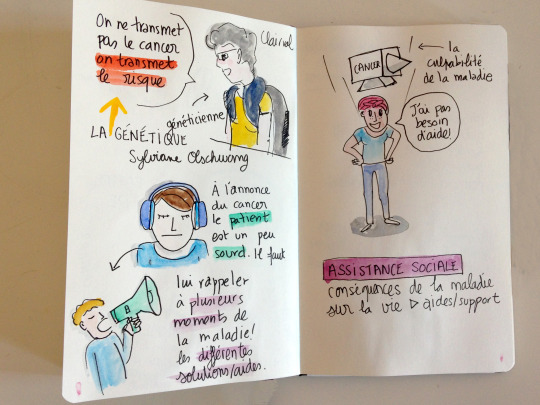 On ne transmet
pas le cancer
on transmet
le risque
Clairval
généticienne
LA GÉNÉTIQUE
Sylviane Olschwang
À l'annonce
du cancer
le patient
est un peu
sourd. Il faut
lui rappeler
à plusieurs
moments de
la maladie!
les différentes
solutions/aides.
CANCER
la
culpabilité
de la maladie
J'ai pas
besoin
d'aide!
ASSISTANCE SOCIALE
conséquences de la maladie
sur la vie ▷ aides/support